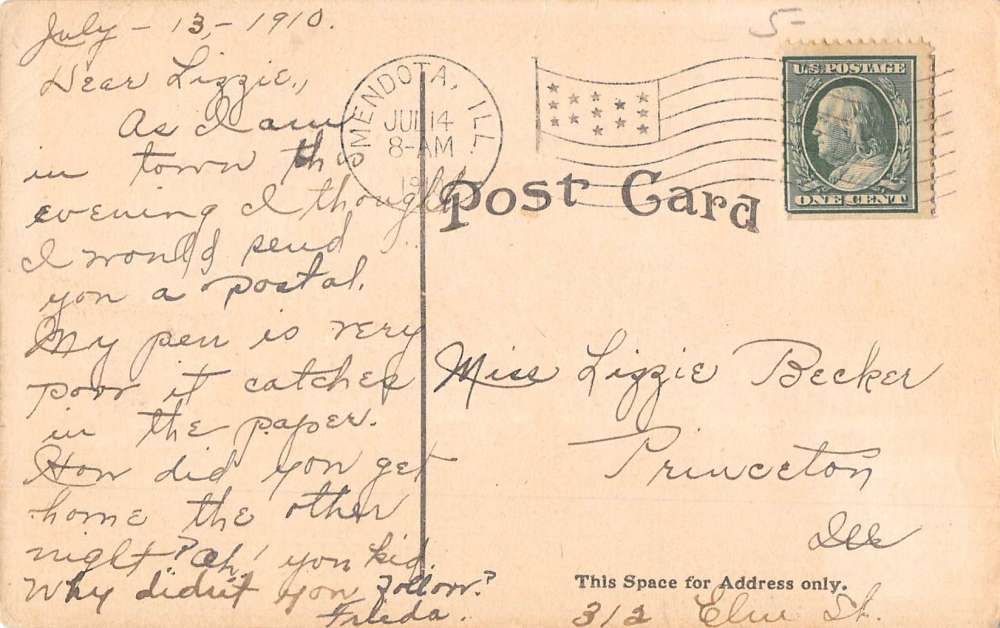 July - 13, - 1910.
Dear Lizzie.,
As I am
in town this
evening I thought
I would send
you a postal.
My pen is very
poor it catches
in the paper.
How did you get
home the other
night? Oh! you kid
Why didn't you follow?
Frieda.
5-
MENDOTA, ILL.
JUL 14
8-AM
U.S. POSTAGE
ONE CENT
Post Card
Miss Lizzie Becker
Princeton
Ill
This Space for Address only.
312 Elm St.